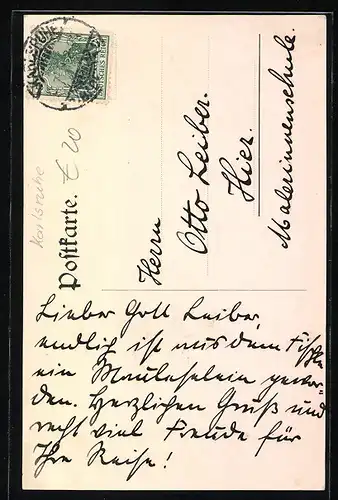 Postkarte.
Karlsruhe
€ 20
KARLSRUHE
Herrn
Otto Leiber.
Hier.
Malerinnenschule.
Lieber Gott Leiber,
endlich ist aus dem
ein Mauleselein gewor-
den. Herzlichen Gruß und
recht viel Freude für
Ihre Reise!